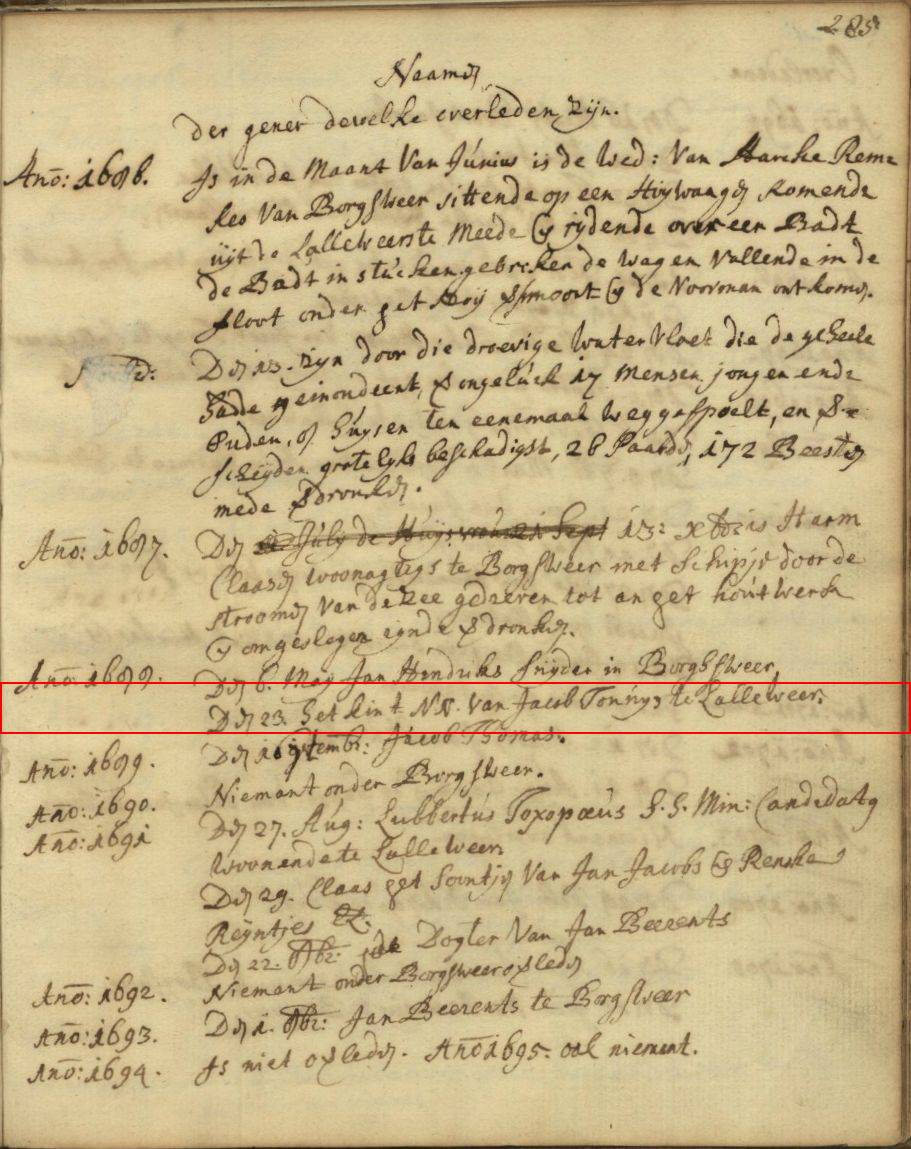 285
Naamen
der gener dewelke overleden zijn.
Ano: 1686. Is in de Maant Van Június is de Wed: Van Harcke Reme
Keo Van Borgsweer sittende op een Hoywaagen komende
uijt de Lalleweerste Meede & rijdende over een Badt
de Badt in stúcken gebrocken de wagen vallende in de
sloot onder het Hoij versmoort & de Voorman ontkomen.
Den 13. zijn door die droevige water vloet die de geheele
geinondeert, verongelúck 17 mensen jong en ende
oúden, 9 húijsen ten eenemaal weg gespoelt, en ver-
scheijden grotelijks beschadigt, 28 Paarden, 172 Beesten
mede verdroncken.
Ano: 1687. Den Júly de Húijsvrouw 13: xbr: is Harm
Claasen woonagtegs te Borgsweer met Schipje door de
stroomen van de zee gedreven tot an het hoútwerck
& omgeslegen eijnde verdroncken.
Ano: 1689. Den 6. Maij Jan Hindricks Snijder in Borghsweer,
Den 23. Het kint NN. van Jacob Tonnijs te Lalleweer.
Den 16 Jacob Thomas.
Ano: 1689. Niemant onder Borgsweer.
Ano: 1690. Den 27. Aug: Lubbertús Toxopæus S. S. Min: Candidatg
Ano: 1691 Woonende te Lalleweer.
Den 29. Claas het Soontje Van Jan Jacobs & Renske
Reijntjes Et.
Den 22. 8br: de Dogter Van Jan Beerents
Ano: 1692. Niemant onder Borgsweer overleden
Ano: 1693. Den 1. 8br: Jan Beerents te Borgsweer
Ano: 1694. Is niet overleden. Ano 1695. ook niement.